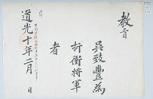 敎旨
吳致豊爲
折衝將軍
者
道光十年二月 日